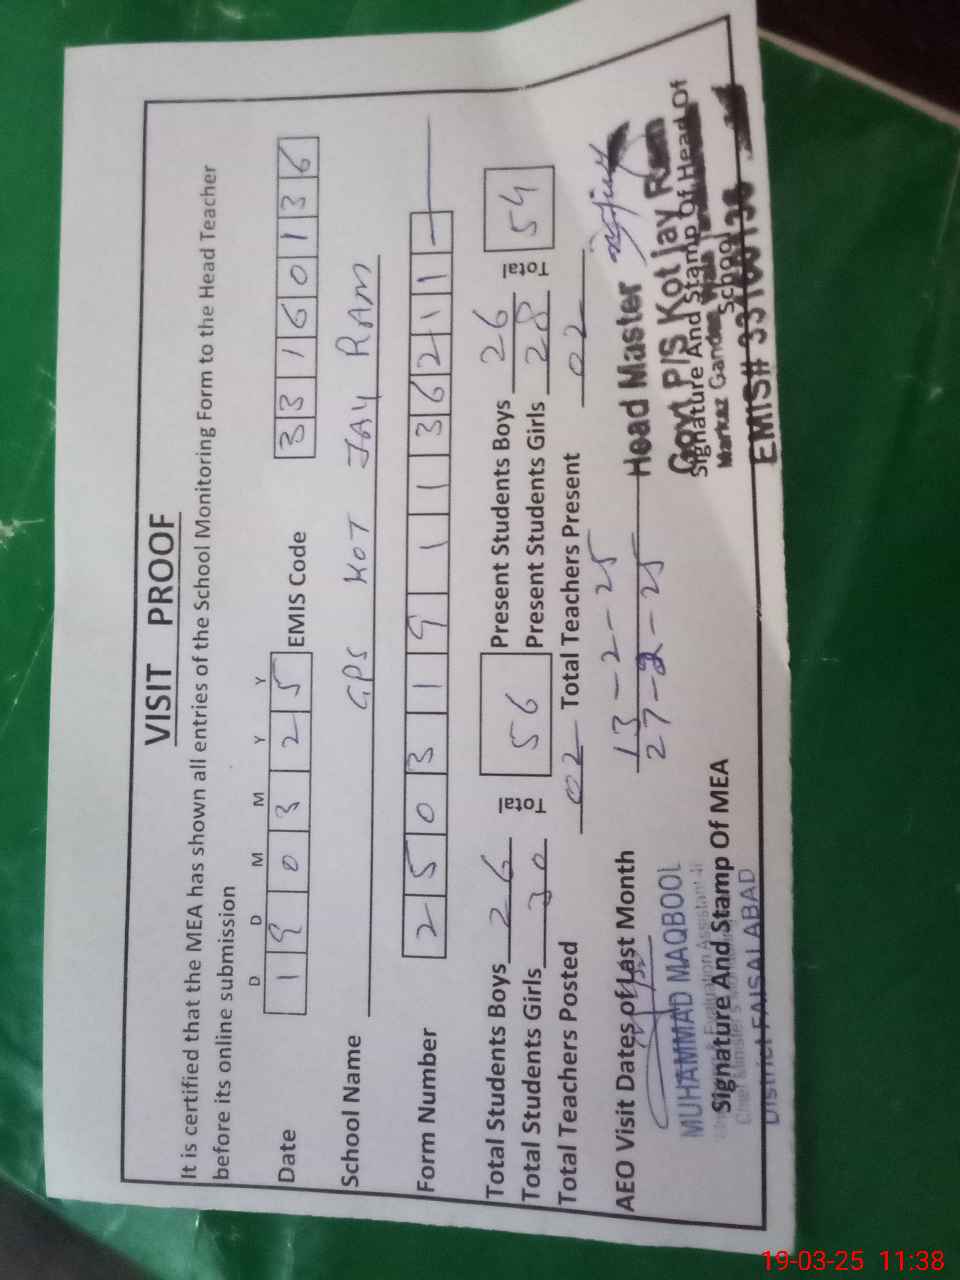 VISIT PROOF
It is certified that the MEA has shown all entries of the School Monitoring Form to the Head Teacher
before its online submission
D D M M Y Y
Date 1 9 0 3 2 5 EMIS Code 3 3 1 6 0 1 3 6
School Name GPS KOT JAY RAM
Form Number 2 5 0 3 1 9 1 1 3 6 2 1 1 -
Total Students Boys 26 Total 56 Present Students Boys 26 Total 54
Total Students Girls 30 Present Students Girls 28
Total Teachers Posted 02 Total Teachers Present 02
AEO Visit Dates of Last Month 13-2-25
27-2-25
Head Master
Govt P/S Kot Jay Ram
Signature And Stamp Of Head Of
School
Markaz
EMIS# 33160136
MUHAMMAD MAQBOOL
& Evaluation Assistant
Signature And Stamp Of MEA
Chief Minister's
District FAISALABAD
19-03-25 11:38